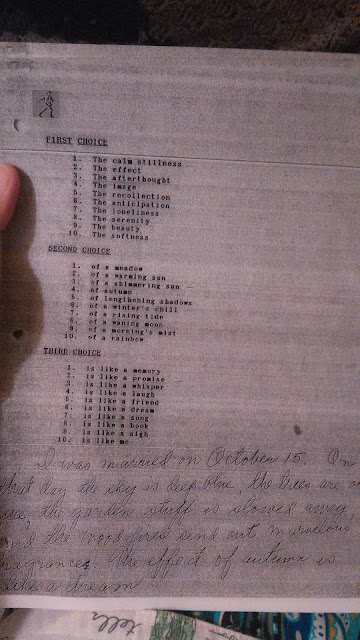 FIRST CHOICE
1. The calm stillness
2. The effect
3. The afterthought
4. The image
5. The recollection
6. The anticipation
7. The loneliness
8. The serenity
9. The beauty
10. The softness
SECOND CHOICE
1. of a meadow
2. of a warming sun
3. of a shimmering sun
4. of autumn
5. of lengthening shadows
6. of a winter's chill
7. of a rising tide
8. of a waning moon
9. of a morning's mist
10. of a rainbow
THIRD CHOICE
1. is like a memory
2. is like a promise
3. is like a whisper
4. is like a laugh
5. is like a friend
6. is like a dream
7. is like a song
8. is like a book
9. is like a sigh
10. is like me
I was married on October 15. On
that day the sky is deep blue, the trees are
the garden stuff is stowed away,
and the wood fires send out marvelous
fragrances. The effect of autumn is
like a dream.